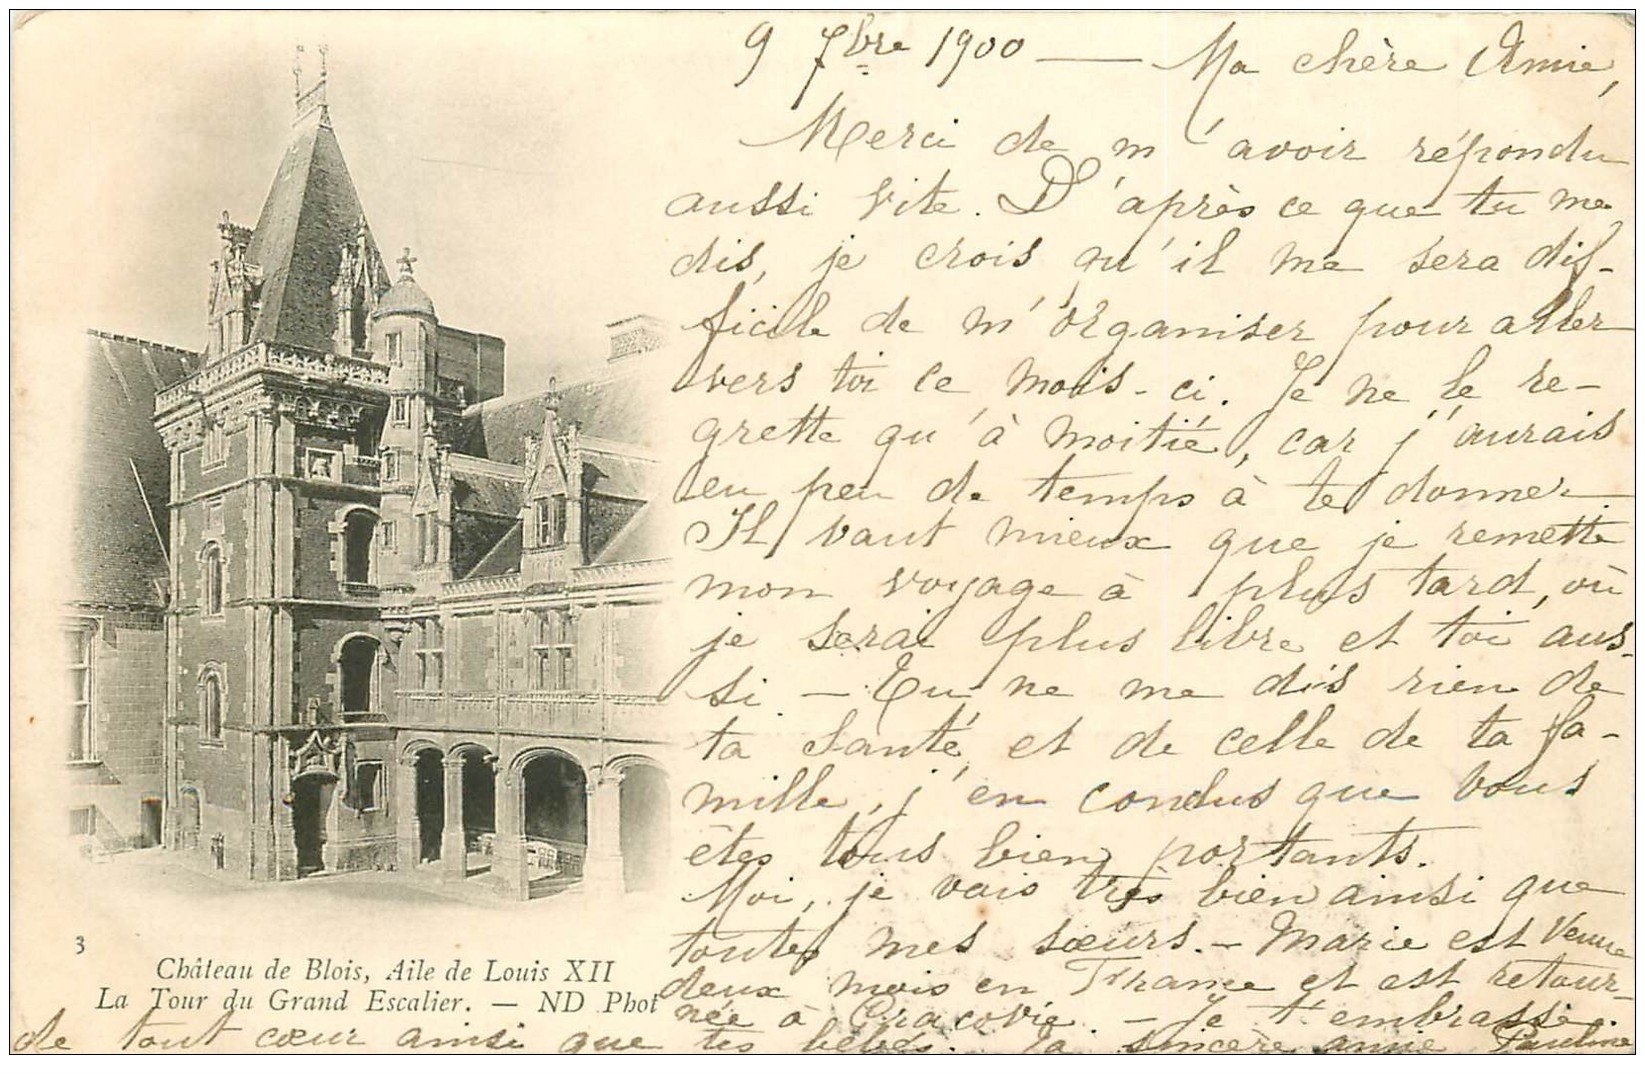 9 7bre 1900 — Ma chère Amie,
Merci de m'avoir répondu
aussi vite. D'après ce que tu me
dis, je crois qu'il me sera dif-
ficile de m'organiser pour aller
vers toi ce mois-ci. Je ne le re-
grette qu'à moitié, car j'aurais
eu peu de temps à te donner
Il vaut mieux que je remette
mon voyage à plus tard, où
je serai plus libre et toi aus-
si — Tu ne me dis rien de
ta santé, et de celle de ta fa-
mille, j'en conclus que vous
êtes tous bien portants.
Moi, je vais très bien ainsi que
toutes mes sœurs. — Marie est venue
deux mois en France et est retour-
née à Cracovie. — Je t'embrasse
de tout cœur ainsi que tes bébés. Ta sincère amie Pauline
3
Château de Blois, Aile de Louis XII
La Tour du Grand Escalier. — ND Phot